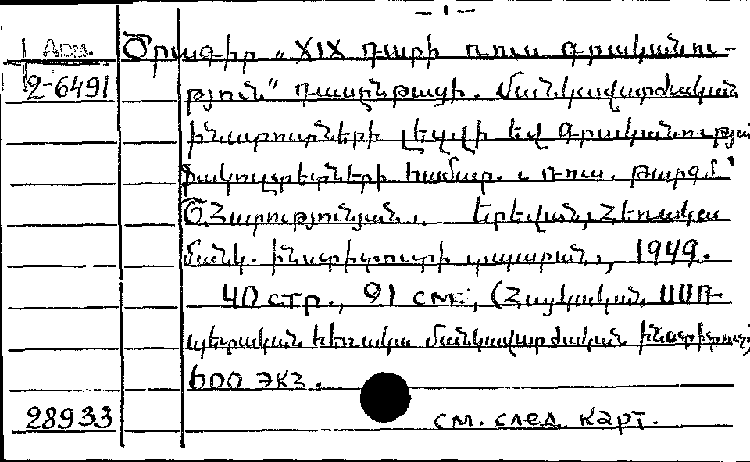 - 1 -
Арм. Ծրագիր „XIX դարի ռուս գրականու-
2-6491 թյուն" դասընթացի. Մանկավարժական
ինստիտուտների լեզվի եվ գրականության
ֆակուլտետների համար. Ռուս. թարգմ.՝
Ծ. Հարությունյան. Երեվան, Հեռակա
մանկ. ինստիտուտի տպարան, 1949.
40 стр., 21 см, (Հայկական ՍՍՌ.
պետական հեռակա մանկավարժական ինստիտուտ)
600 экз.
28933 см. след. карт.